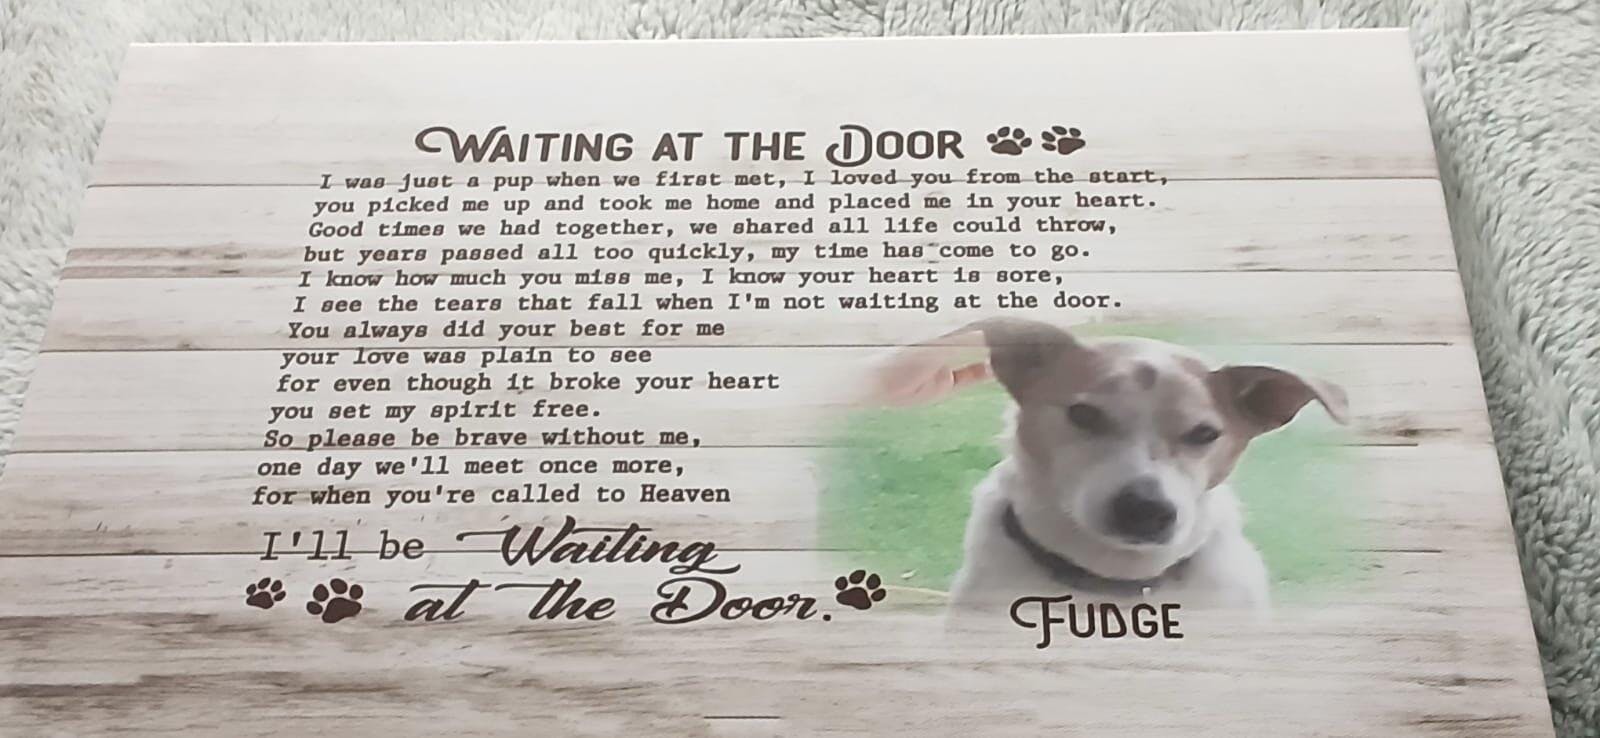 WAITING AT THE DOOR
I was just a pup when we first met, I loved you from the start,
you picked me up and took me home and placed me in your heart.
Good times we had together, we shared all life could throw,
but years passed all too quickly, my time has come to go.
I know how much you miss me, I know your heart is sore,
I see the tears that fall when I'm not waiting at the door.
You always did your best for me
your love was plain to see
for even though it broke your heart
you set my spirit free.
So please be brave without me,
one day we'll meet once more,
for when you're called to Heaven
I'll be Waiting
at the Door.
FUDGE